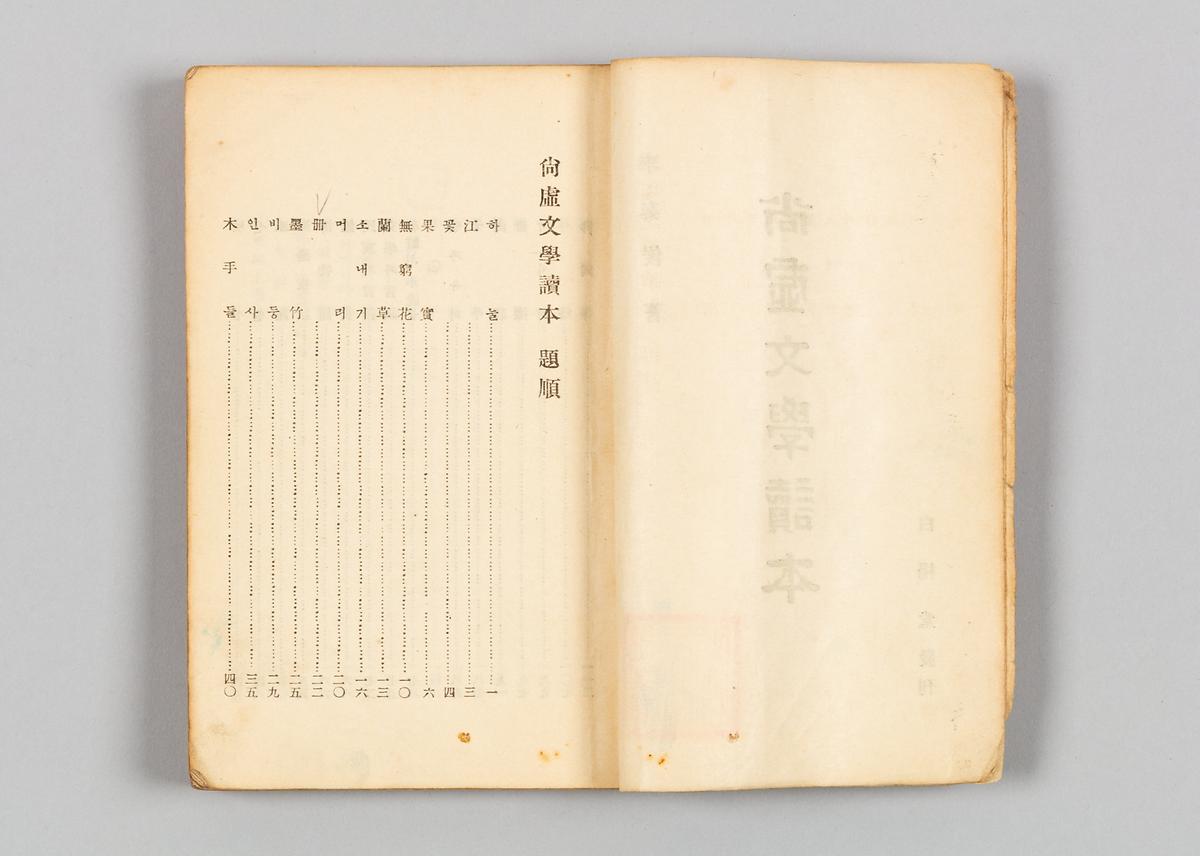 尙虛文學讀本 題順
하늘 一
江 三
꽃 四
果實 六
無窮花 一〇
蘭草 一三
소내기 一六
머리 二〇
册 二二
墨竹 二五
비둥 二九
인사 三五
木手들 四〇
尙虛文學讀本
白楊堂發刊